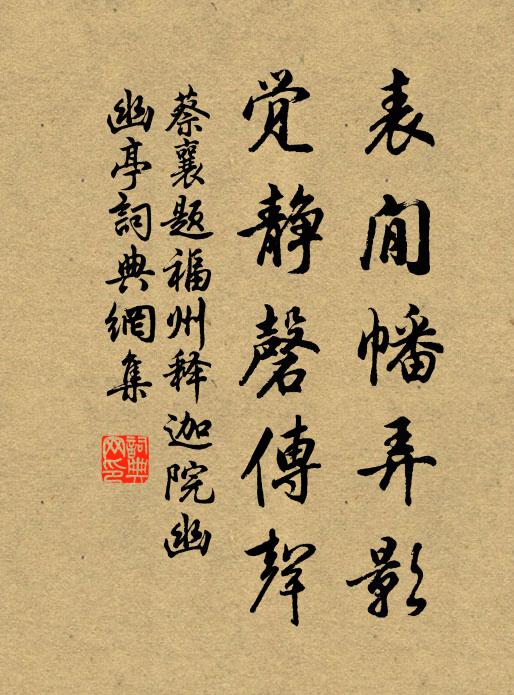 表閒幡弄影
覚静磬傳聲
蔡襄题福州释迦院幽
幽亭詞典網集
詞典网印